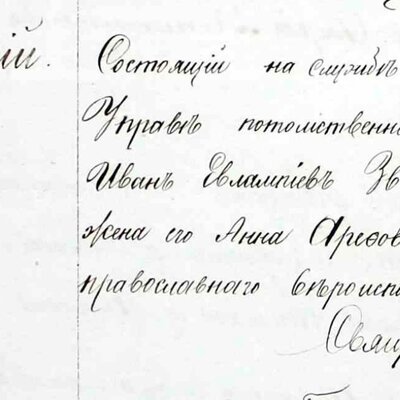 ій.
Состоящій на службѣ
Управѣ потомственн
Иванъ Евлампіевъ Зв
жена его Анна Арефов
православнаго вѣроисп
Свящ